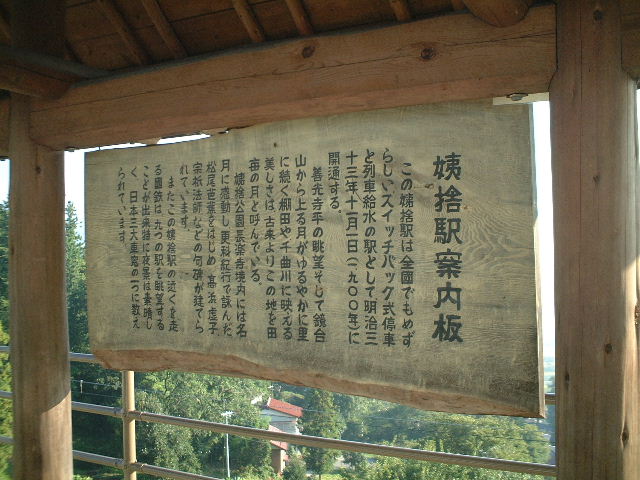 姨捨駅案内板
この姨捨駅は全国でもめず
らしいスイッチバック式停車
と列車給水の駅として明治三
十三年十一月一日(一九〇〇年)に
開通する。
善光寺平の眺望そして鏡台
山から上る月がゆるやかに里
に続く棚田や千曲川に映える
美しさは古来よりこの地を田
毎の月と呼んでいる。
姨捨公園長楽寺境内には名
月に感動し更科紀行で詠んだ
松尾芭蕉をはじめ高浜虚子
宗祇法師などの句碑が建てら
れています。
またこの姨捨駅の近くを走
る國鉄は九つの駅を眺望する
ことが出来特に夜景は素晴し
く、日本三大車窓の一つに数え
られています。